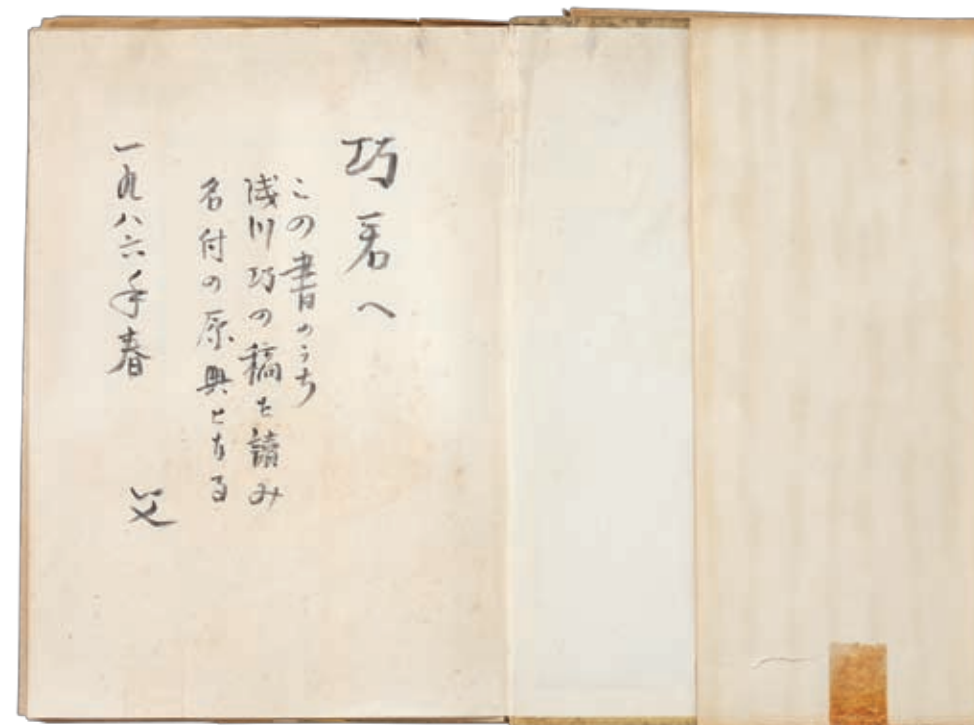 巧君へ
この書のうち
浅川巧の稿を讀み
名付の原典となる
一九八六年春
父